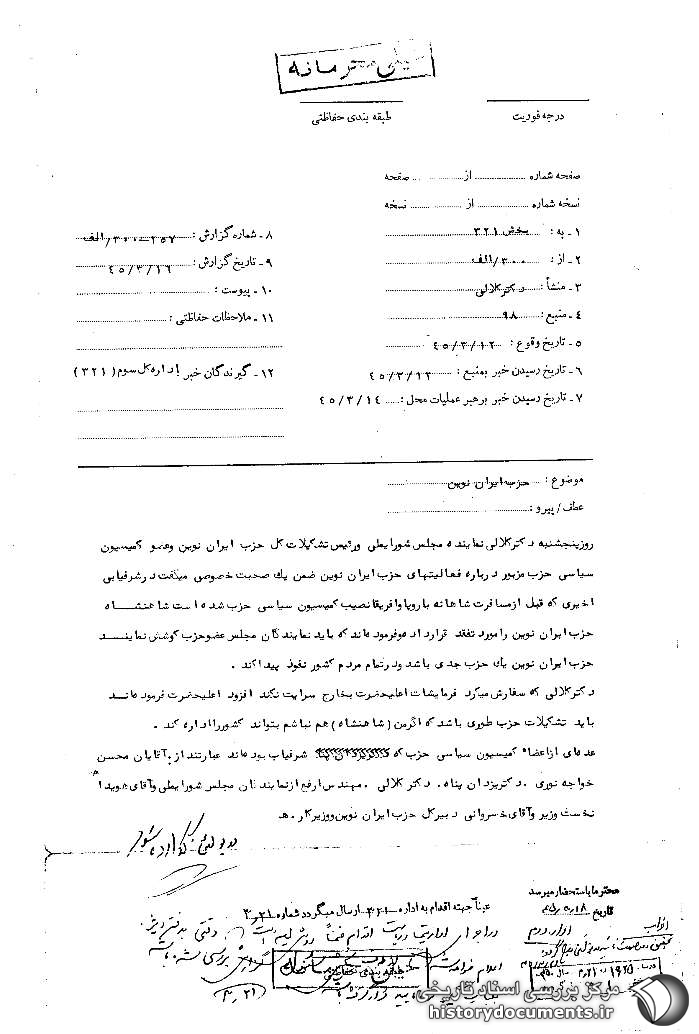 خیلی محرمانه
درجه فوریت
طبقه بندی حفاظتی
صفحه شماره ........ از ........ صفحه
نسخه شماره ........ از ........ نسخه
۱ـ به : بخش ۳۲۱
۲ـ از : ۳۰۰/الف
۳ـ منشأ : دکترکلالی
۴ـ منبع : ۹۸
۵ـ تاریخ وقوع : ۴۵/۳/۱۲
۶ـ تاریخ رسیدن خبر بمنبع : ۴۵/۳/۱۲
۷ـ تاریخ رسیدن خبر برهبر عملیات محل : ۴۵/۳/۱۴
۸ـ شماره گزارش : ۳۰۰۰۲۵۷/الف
۹ـ تاریخ گزارش : ۴۵/۳/۱۶
۱۰ـ پیوست :
۱۱ـ ملاحظات حفاظتی :
۱۲ـ گیرندگان خبر اداره کل سوم (۳۲۱)
موضوع : حزب ایران نوین
عطف/پیرو :
روزپنجشنبه دکترکلالی نماینده مجلس شورایملی ورئیس تشکیلات کل حزب ایران نوین وعضو کمیسیون
سیاسی حزب مزبور درباره فعالیتهای حزب ایران نوین ضمن یك صحبت خصوصی میگفت درشرفیابی
اخیری که قبل ازمسافرت شاهانه باروپا وافریقا نصیب کمیسیون سیاسی حزب شده است شاهنشاه
حزب ایران نوین را مورد تفقد قرارداده وفرموده اند که باید نمایندگان مجلس عضوحزب کوشش نمایند
حزب ایران نوین یك حزب جدی باشد ودرتمام مردم کشور نفوذ پیدا کند .
دکترکلالی که سفارش میکرد فرمایشات اعلیحضرت بخارج سرایت نکند افزود اعلیحضرت فرموده اند
باید تشکیلات حزب طوری باشد که اگرمن (شاهنشاه) هم نباشم بتواند کشوررا اداره کند .
عده ای ازاعضاء کمیسیون سیاسی حزب که شرفیاب بوده اند عبارتند از آقایان محسن
خواجه نوری . دکتریزدان پناه . دکترکلالی . مهندس ارفع ازنمایندگان مجلس شورایملی وآقای هویدا
نخست وزیر وآقای خسروانی دبیرکل حزب ایران نوین ووزیرکار . ه
محترما باستحضار میرسد
تاریخ
عیناً جهته اقدام به اداره ۳۲۱ ارسال میگردد شماره
طبقه بندی حفاظتی
مرکز بررسی اسناد تاریخی
historydocuments.ir